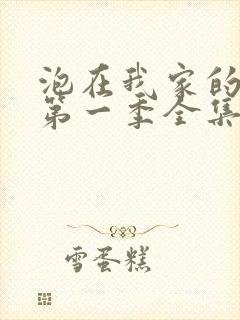 泡在我家的
第一季全集
雪蛋糕